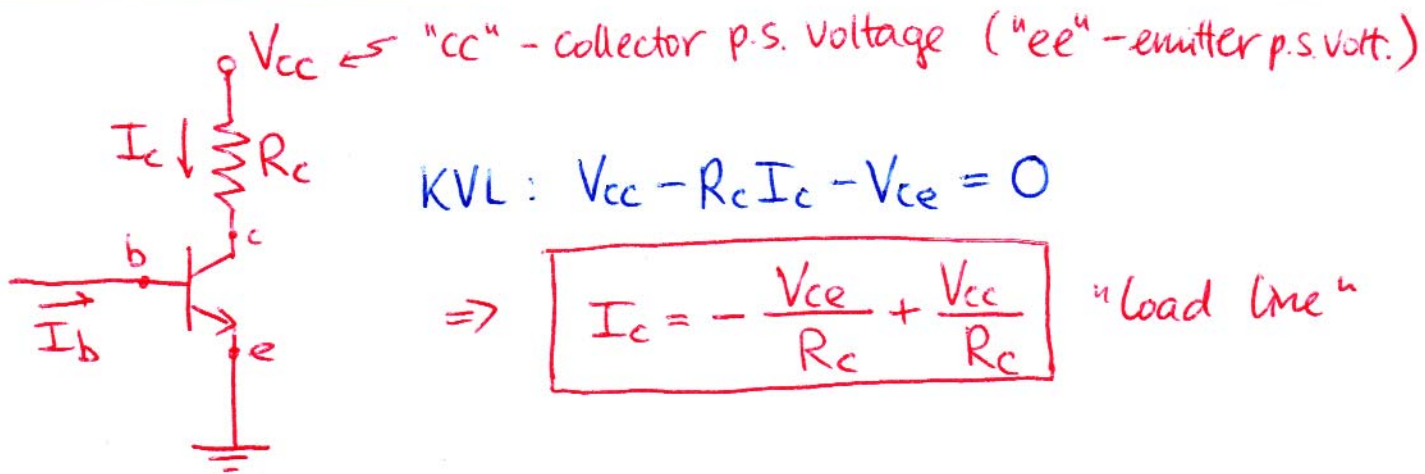 Vcc "cc" - collector p.s. voltage ("ee" - emitter p.s. volt.)
Ic ↓ Rc
KVL: Vcc - RcIc - Vce = 0
c
b
=> Ic = - Vce/Rc + Vcc/Rc "load line"
Ib
e